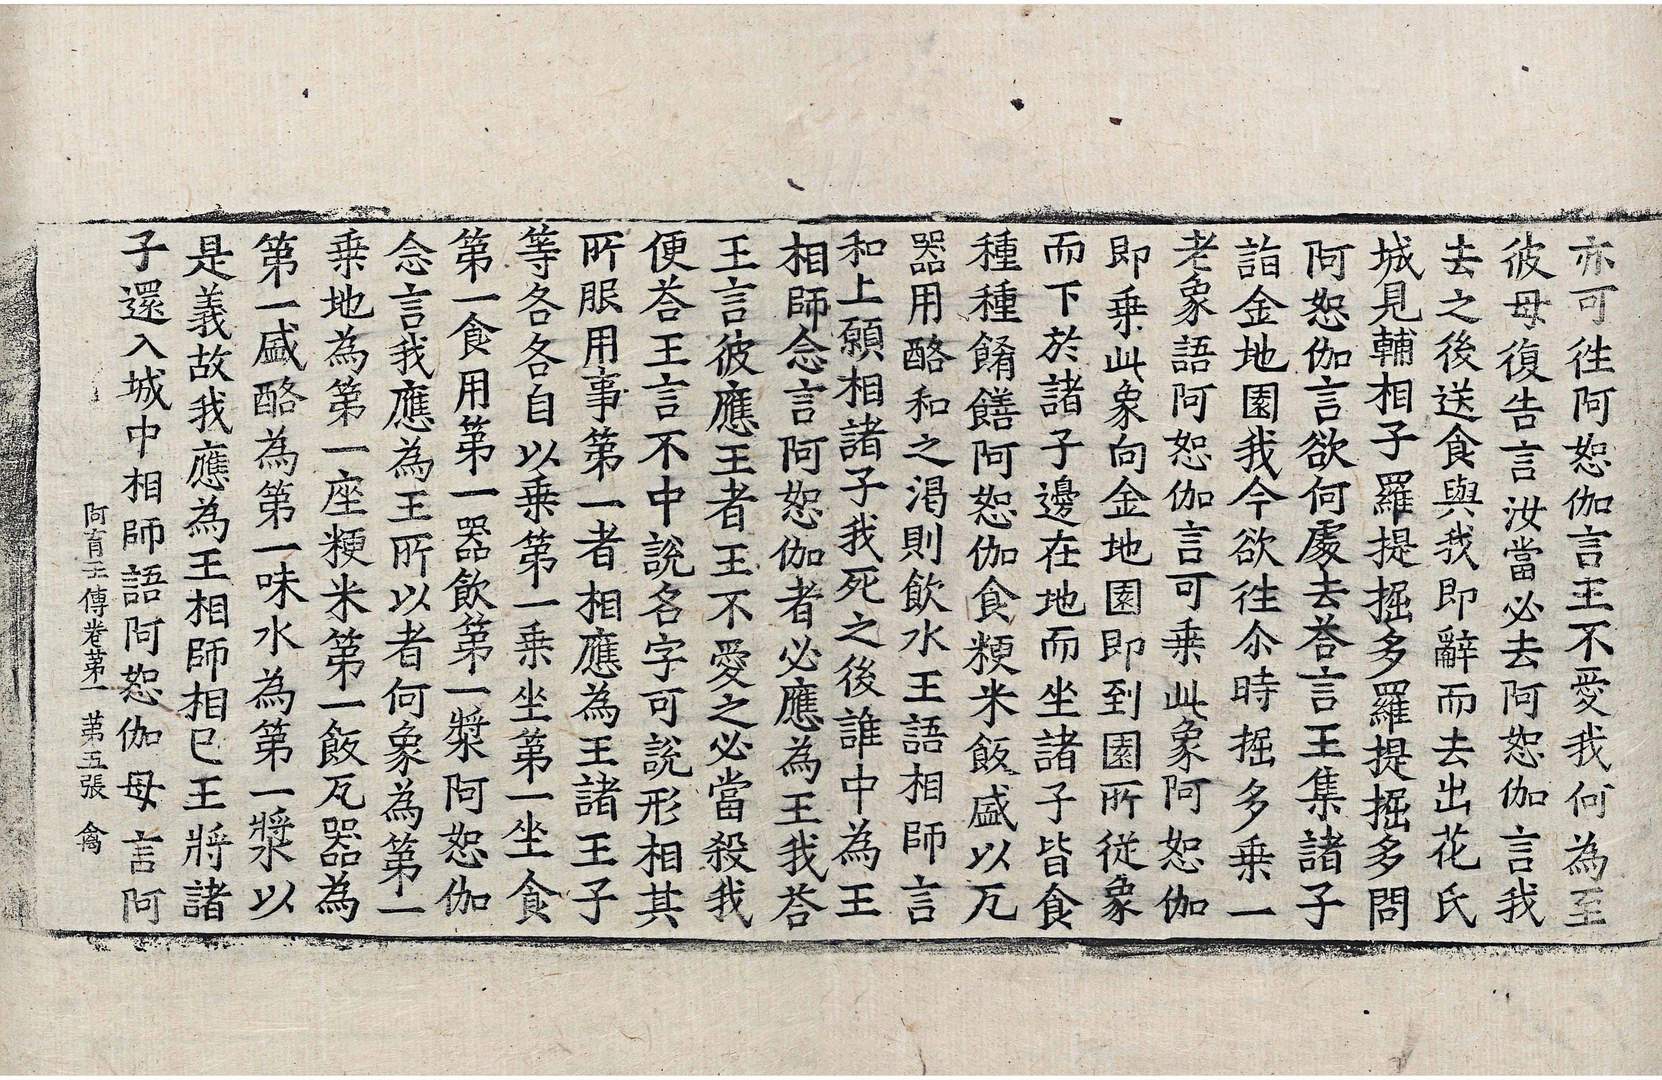 亦可徃阿恕伽言王不愛我何為至
彼母復告言汝當必去阿恕伽言我
去之後送食與我即辭而去出花氏
城見輔相子羅提掘多羅提掘多問
阿恕伽言欲何處去荅言王集諸子
詣金地園我今欲徃尒時掘多乗一
老象語阿恕伽言可乗此象阿恕伽
即乗此象向金地園即到園所従象
而下於諸子邊在地而坐諸子皆食
種種餚饍阿恕伽食粳米飯盛以瓦
器用酪和之渇則飲水王語相師言
和上願相諸子我死之後誰中為王
相師念言阿恕伽者必應為王我荅
王言彼應王者王不愛之必當殺我
便荅王言不中說名字可說形相其
所服用事第一者相應為王諸王子
等各各自以乗第一乗坐第一坐食
第一食用第一器飲第一漿阿恕伽
念言我應為王所以者何象為第一
乗地為第一座粳米第一飯瓦器為
第一盛酪為第一味水為第一漿以
是義故我應為王相師相已王將諸
子還入城中相師語阿恕伽母言阿
阿育王傳卷第一 第五張 禽